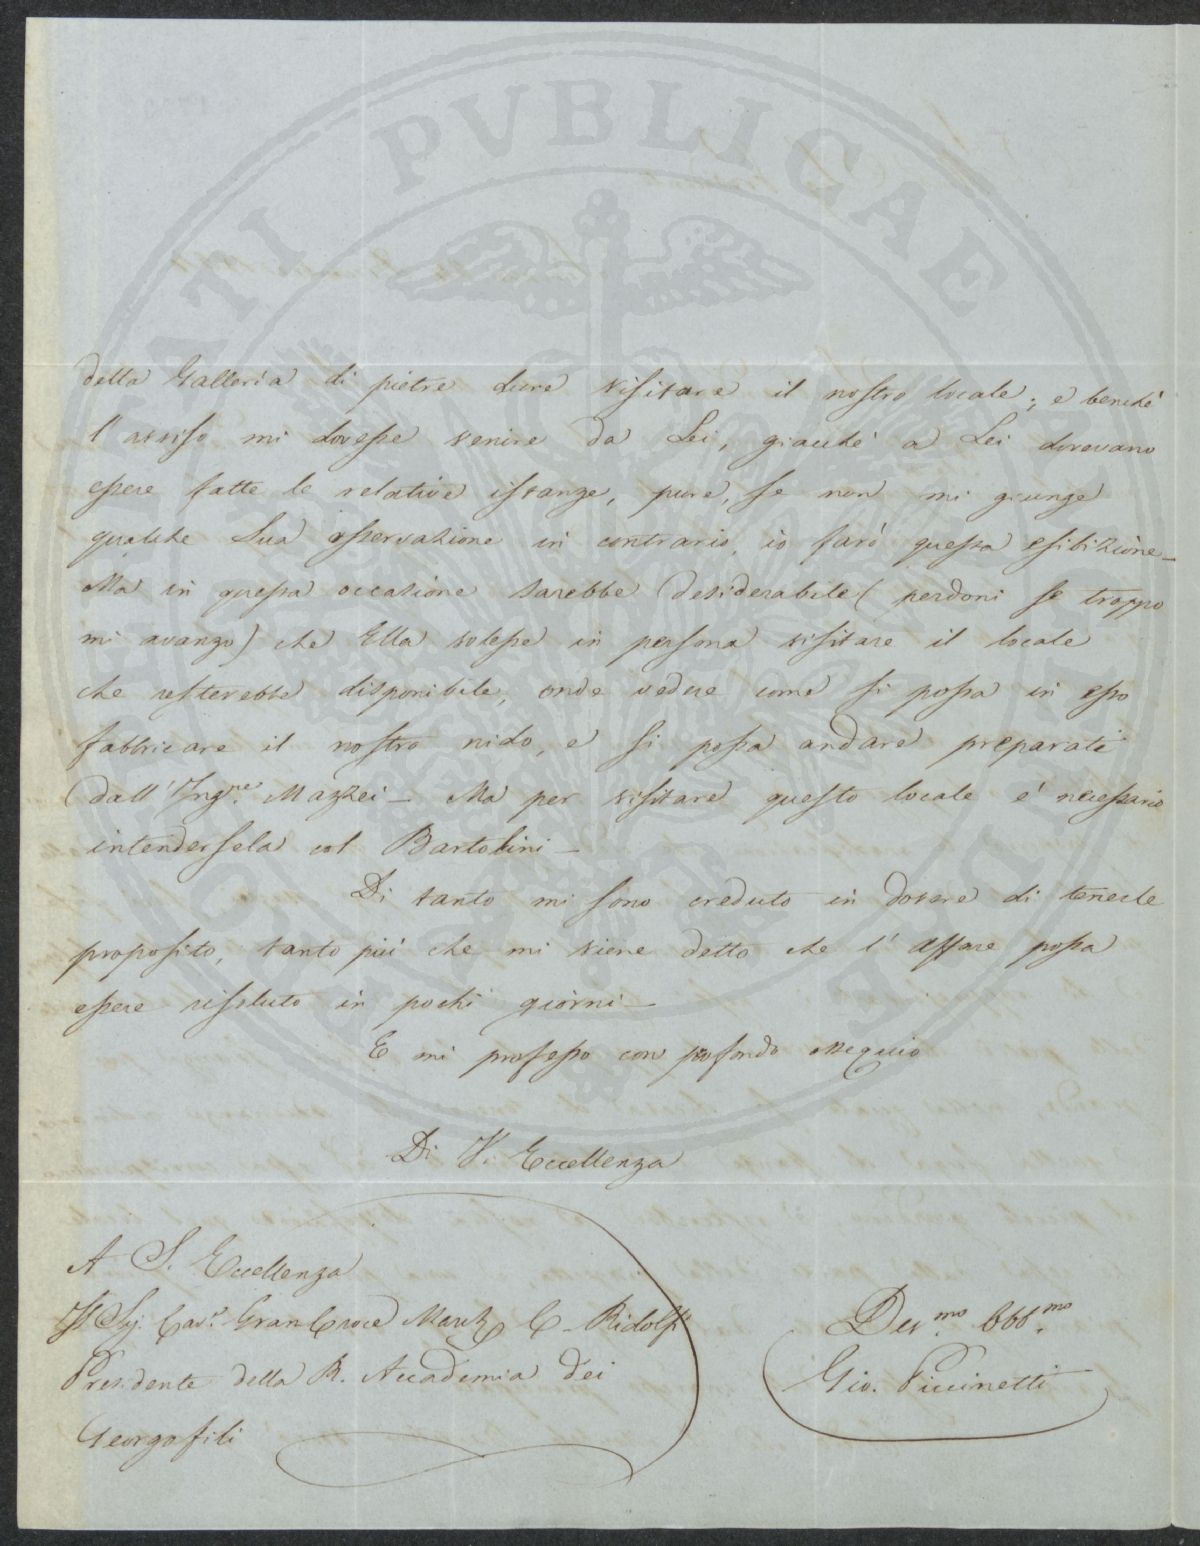 PROSPERITATI PUBLICAE AUGENDAE
della Galleria di pietre dure visitare il nostro locale; e benché
l'avviso mi dovesse venire da Lei, giacché a Lei dovevano
essere fatte le relative istanze, pure, se non mi giunge
qualche Sua osservazione in contrario, io farò questa esibizione_
Ma in questa occasione sarebbe desiderabile (perdoni se troppo
mi avanzo) che Ella volesse in persona visitare il locale
che resterebbe disponibile, onde vedere come si possa in esso
fabbricare il nostro nido, e si possa andare preparati
dall'Ingre. Mazzei_ Ma per visitare questo locale é necessario
intendersela col Bartolini_
Di tanto mi sono creduto in dovere di tenerle
proposito, tanto piú che mi viene detto che l'affare possa
essere risoluto in pochi giorni_
E mi professo con profondo ossequio
Di V. Eccellenza
A S. Eccellenza
Il Sig. Cavr. Gran Croce March C. Ridolfi
Presidente della R. Accademia dei
Georgofili
Devmo. Obbmo.
Gio. Piccinetti